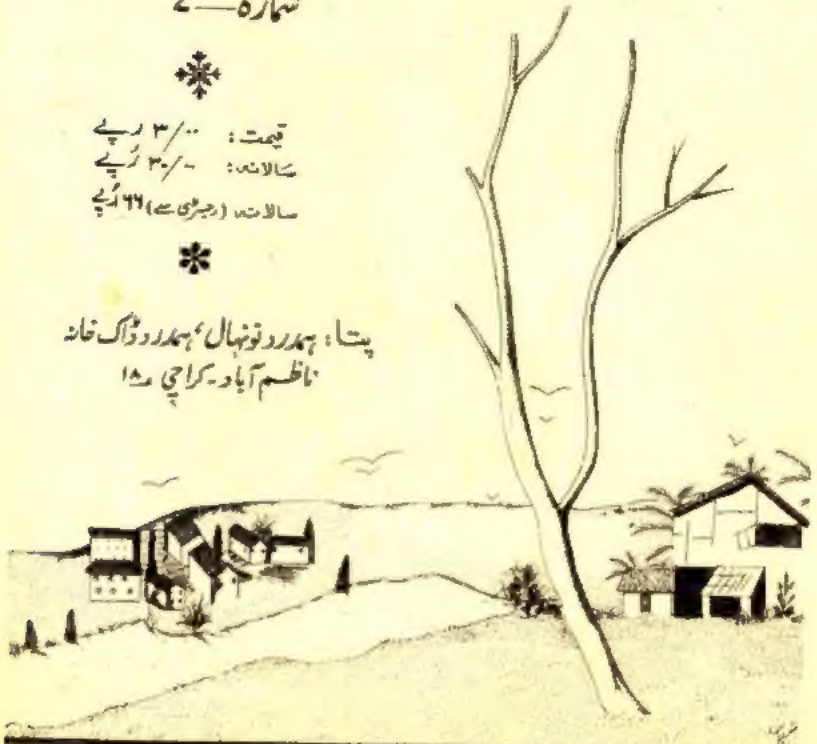 شمارہ — ۷
قیمت: ۳/۰۰ رپے
سالانہ: ۳۰/۰ رپے
سالانہ (رجسٹری سے) ۶۶ رپے
پتا: ہمدرد نونہال، ہمدرد ڈاک خانہ
ناظم آباد۔ کراچی ۱۸